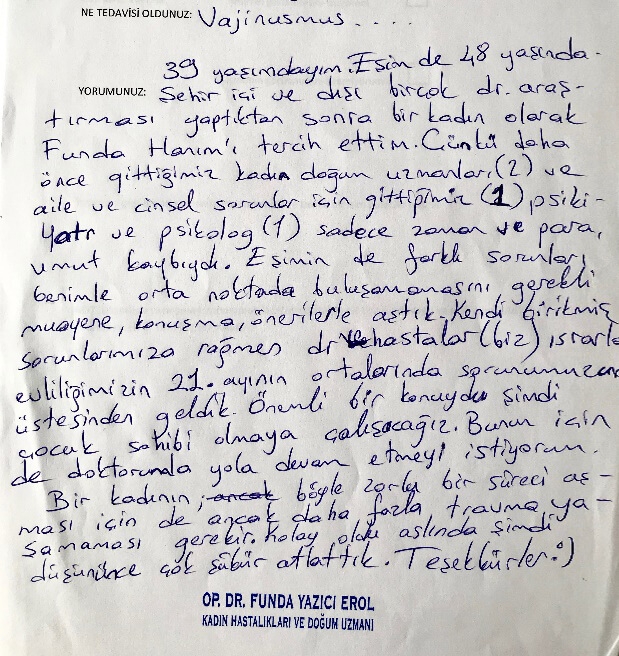 NE TEDAVİSİ OLDUNUZ: Vajinusmus....
39 yaşındayım. Eşim de 48 yaşında.
YORUMUNUZ: Şehir içi ve dışı birçok dr. araş-
tırması yaptıktan sonra bir kadın olarak
Funda Hanım'ı tercih ettim. Çünkü daha
önce gittiğimiz kadın doğum uzmanları (2) ve
aile ve cinsel sorunlar için gittiğimiz (1) psiki-
yatr ve psikolog (1) sadece zaman ve para,
umut kaybıydı. Eşimin de farklı sorunları,
benimle orta noktada buluşamamasını gerekli
muayene, konuşma, önerilerle aştık. Kendi birikmiş
sorunlarımıza rağmen dr ve hastalar (biz) ısrarla
evliliğimizin 21. ayının ortalarında sorunumuzun
üstesinden geldik. Önemli bir konuydu şimdi
çocuk sahibi olmaya çalışacağız. Bunun için
de doktorumla yola devam etmeyi istiyorum.
Bir kadının, ancak böyle zorlu bir süreci aş-
ması için de ancak daha fazla travma ya-
şamaması gerekir. Kolay oldu aslında şimdi
düşününce çok şükür atlattık. Teşekkürler :)
OP. DR. FUNDA YAZICI EROL
KADIN HASTALIKLARI VE DOĞUM UZMANI